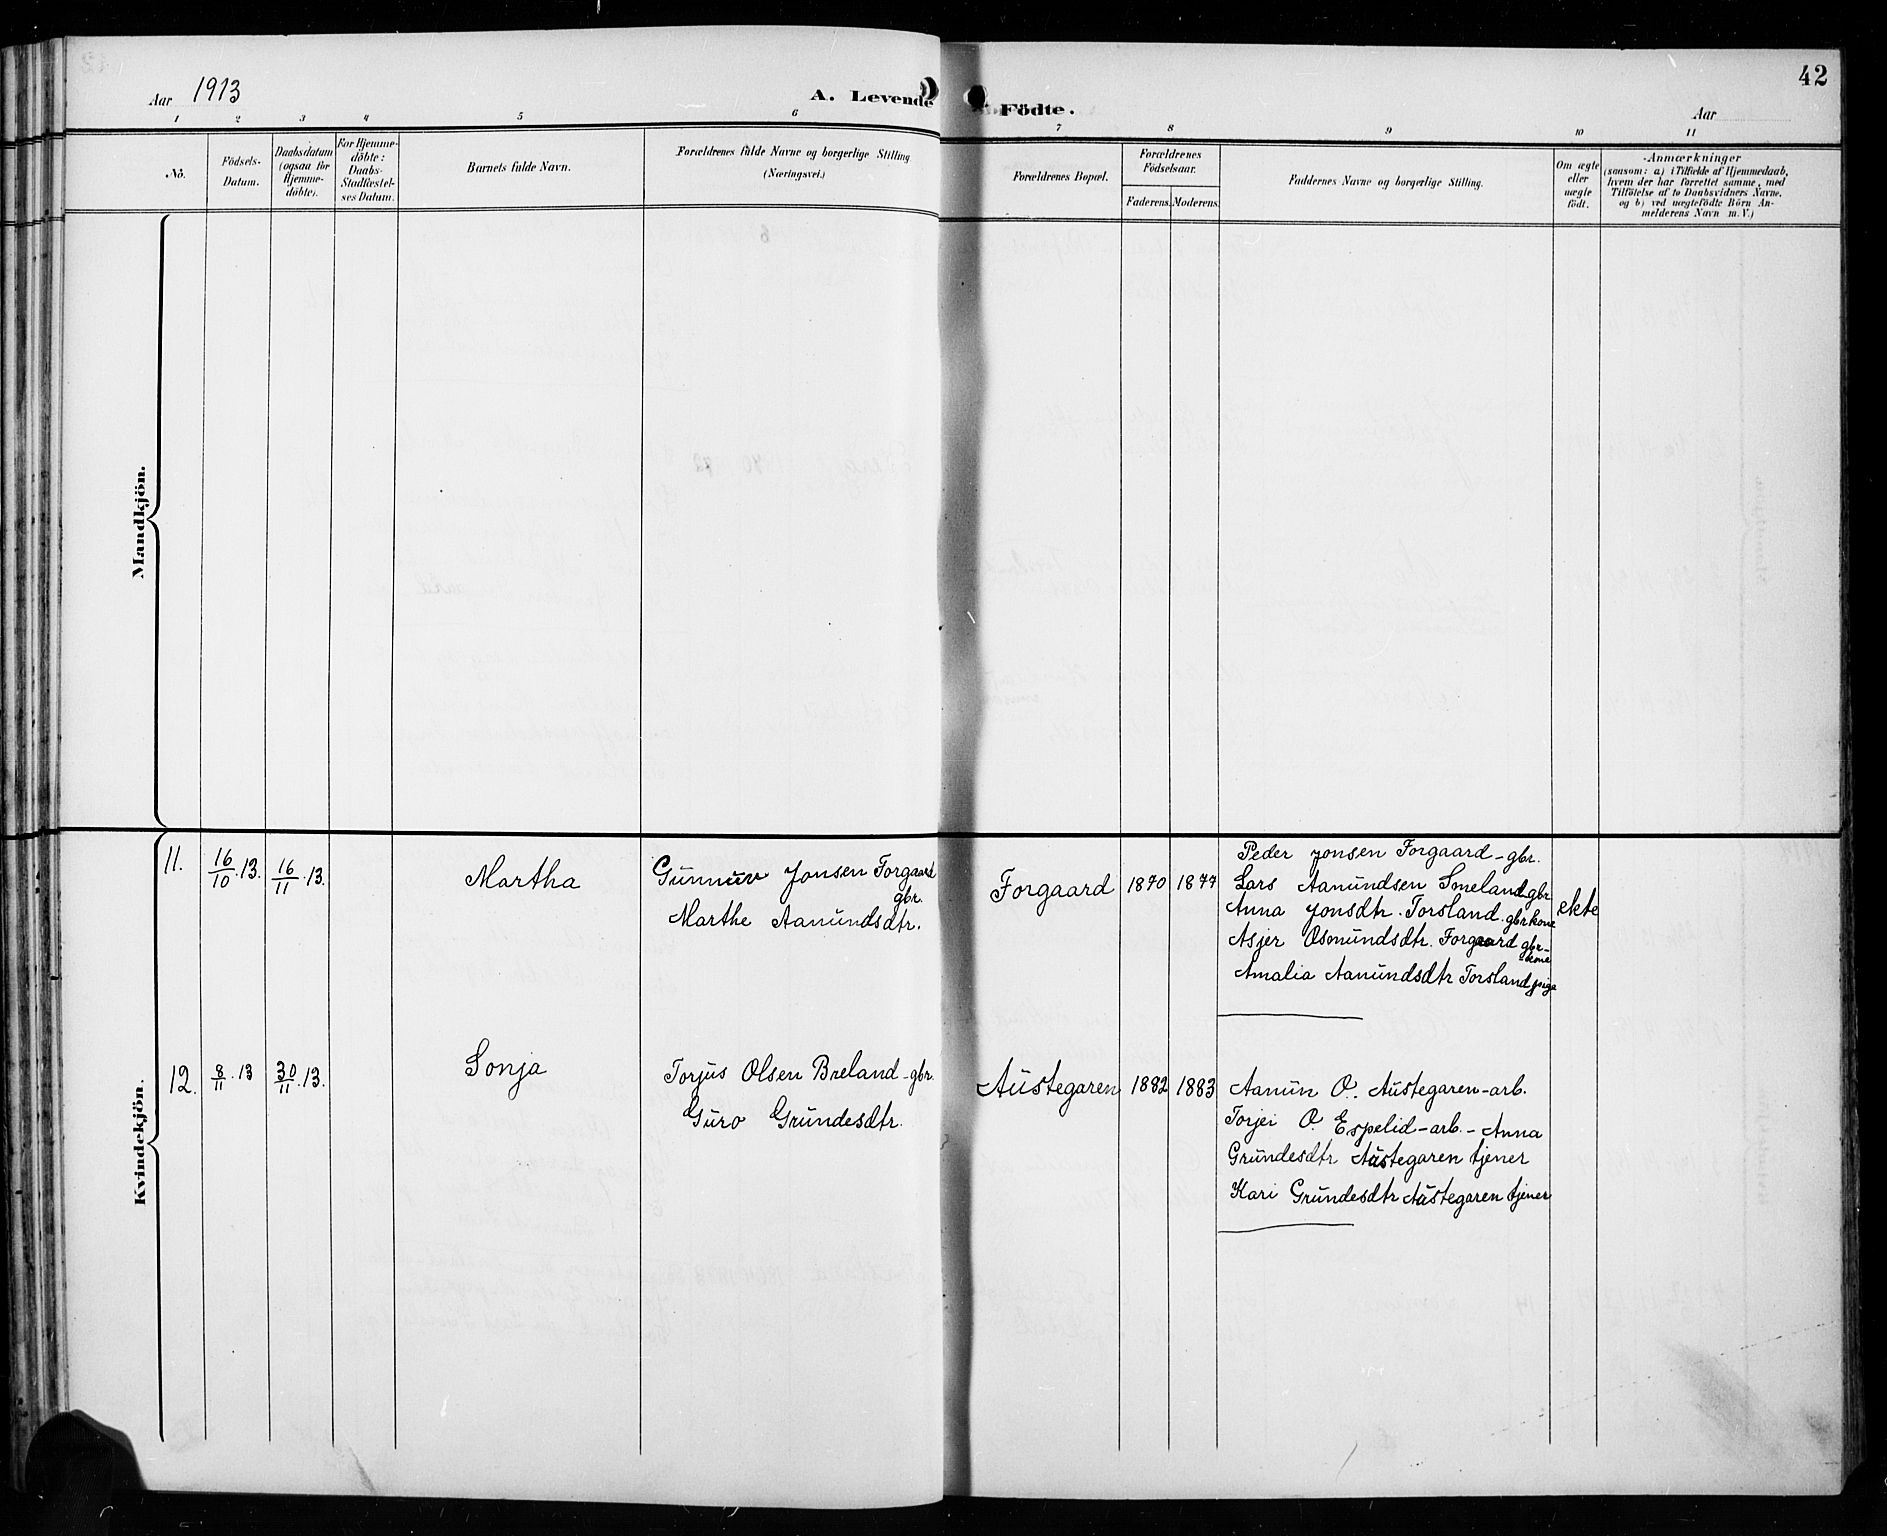 42
Aar 1913
A. Levende Födte.
Aar
1 2 3 4 5 6 7 8 9 10 11
No.
Födsels-Datum.
Daabsdatum (ogsaa for Hjemme-döbte).
For Hjemme-döbte: Daabs-Stadfæstel-ses Datum.
Barnets fulde Navn.
Forældrenes fulde Navne og borgerlige Stilling
(Næringsvei.)
Forældrenes Bopæl.
Forældrenes Födselsaar.
Faderens. Moderens.
Faddernes Navne og borgerlige Stilling.
Om ægte eller uægte födt.
Anmærkninger
(saasom: a) i Tilfælde af Hjemmedaab,
hvem der har forrettet samme, med
Tilföielse af to Daabsvidners Navne,
og b) ved uægtefödte Börn An-
melderens Navn m. V.)
Mandkjön.
Kvindekjön.
11. 16/10.13. 16/11.13. Martha
Gunnuv Jonsen Forgaard
gbr.
Marthe Aanundsdtr.
Forgaard 1870 1877
Peder Jonsen Forgaard - gbr.
Lars Aanundsen Smeland gbr
Anna Jonsdtr. Torsland. gbrkone
Asjer Osmundsdtr. Forgaard gbr-
kone
Amalia Aanundsdtr Torsland pige
ekte
12. 8/11.13 30/11.13. Sonja
Torjus Olsen Breland - gbr.
Guro Grundesdtr.
Austegaren 1882 1883
Aanun O. Austegaren - arb.
Torjei O. Espelid - arb. - Anna
Grundesdtr Austegaren tjener
Kari Grundesdtr Austegaren tjener